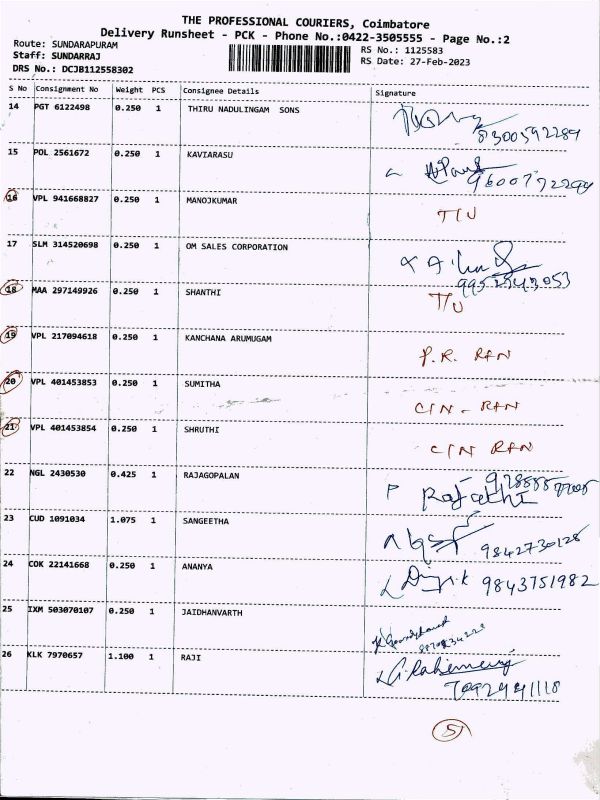 THE PROFESSIONAL COURIERS, Coimbatore
Delivery Runsheet - PCK - Phone No.:0422-3505555 - Page No.:2
Route: SUNDARAPURAM RS No.: 1125583
Staff: SUNDARRAJ RS Date: 27-Feb-2023
DRS No.: DCJB112558302
S No Consignment No Weight PCS Consignee Details Signature
14 PGT 6122498 0.250 1 THIRU NADULINGAM SONS
8300592289
15 POL 2561672 0.250 1 KAVIARASU
9600772299
16 VPL 941668827 0.250 1 MANOJKUMAR T/U
17 SLM 314520698 0.250 1 OM SALES CORPORATION
18 MAA 297149926 0.250 1 SHANTHI T/U
19 VPL 217094618 0.250 1 KANCHANA ARUMUGAM P.R. RAN
20 VPL 401453853 0.250 1 SUMITHA C/N - RAN
21 VPL 401453854 0.250 1 SHRUTHI C/N RAN
22 NGL 2430530 0.425 1 RAJAGOPALAN
23 CUD 1091034 1.075 1 SANGEETHA 9842730128
24 COK 22141668 0.250 1 ANANYA 9843751982
25 IXM 503070107 0.250 1 JAIDHANVARTH
26 KLK 7970657 1.100 1 RAJI